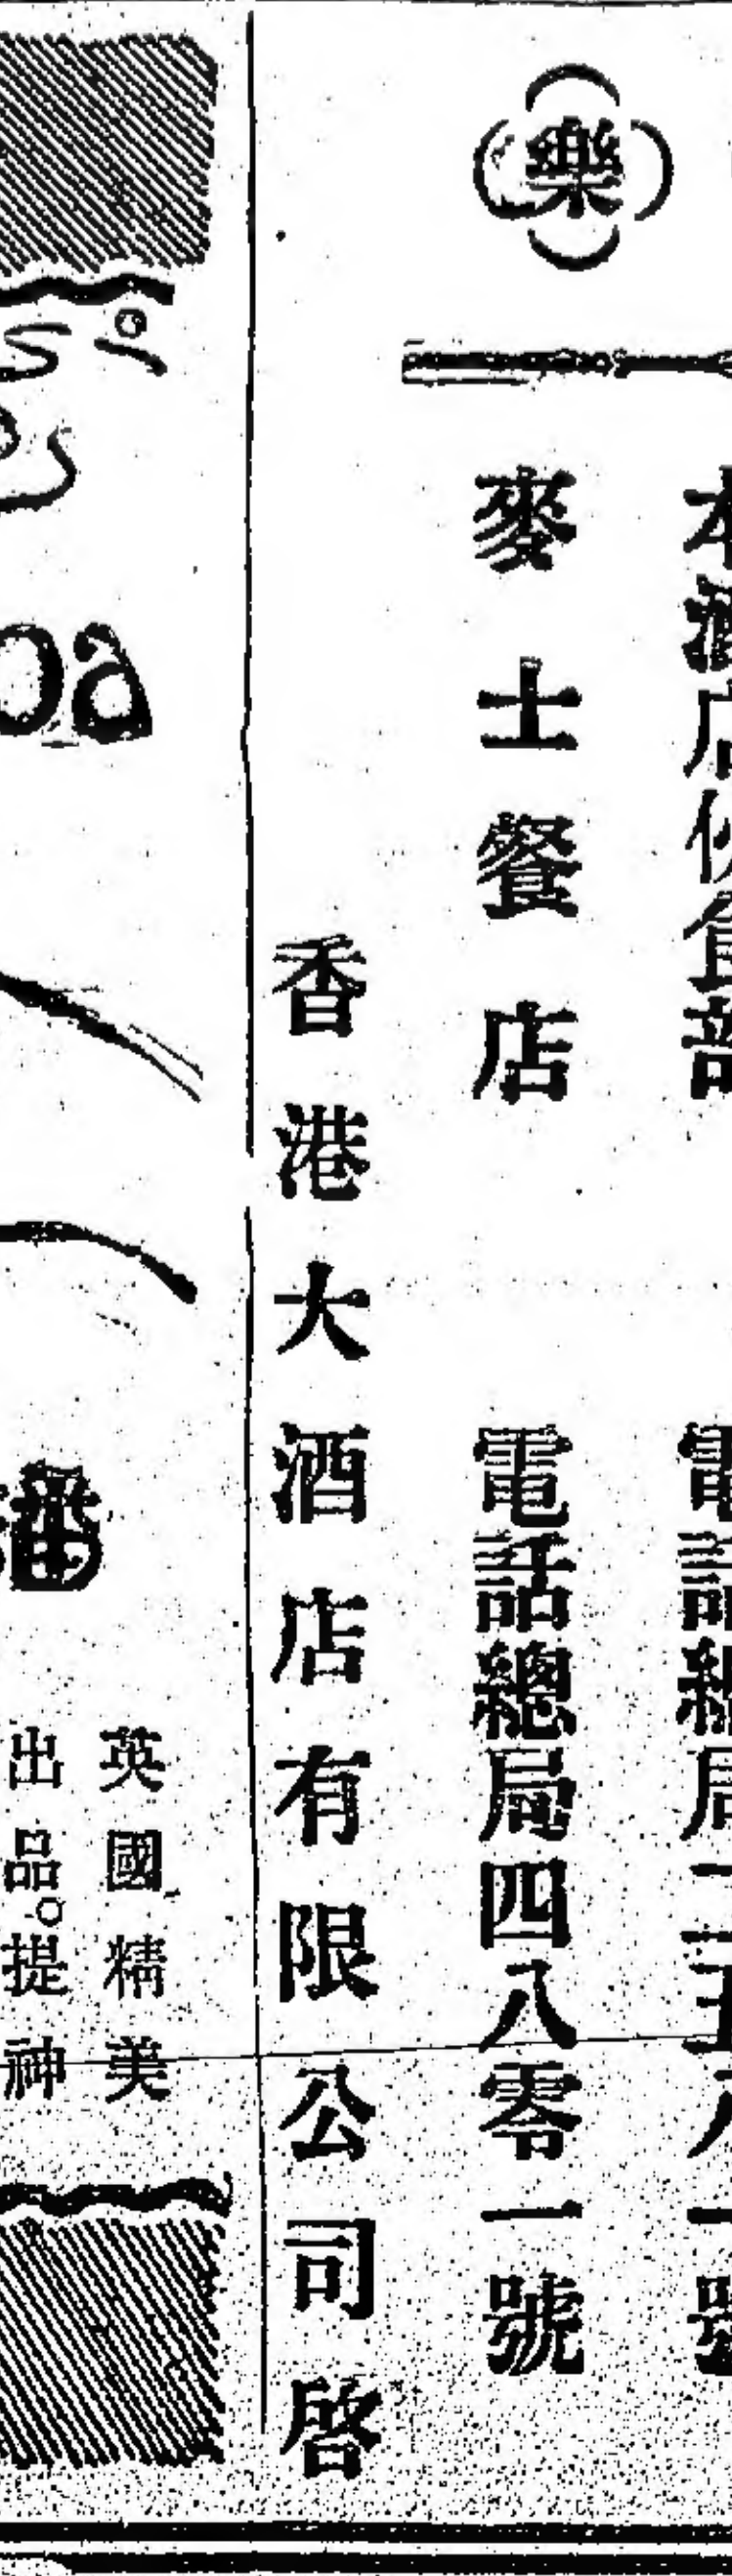 樂
本酒店伙食部
電話總局二五八一號
麥士餐店
電話總局四八零一號
香港大酒店有限公司啓
英國精美
出品。提神